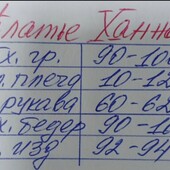 Платье Ханна
х. гр. 90-10
плеча 10-12
рукава 60-62
х. бедер 90-1
изд 92-94